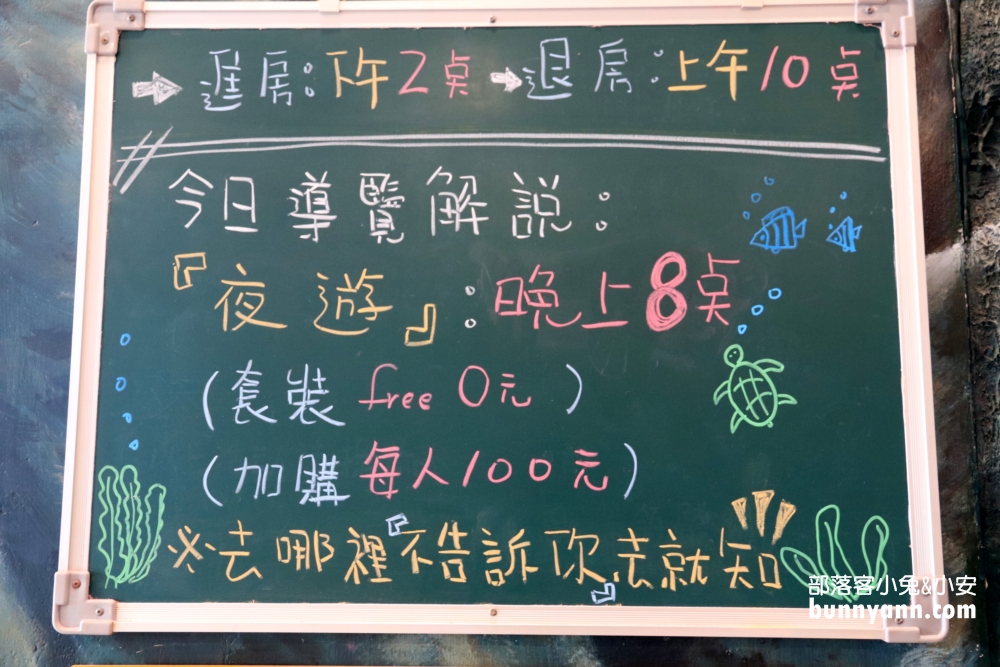 進房:下午2點 退房:上午10點
今日導覽解說:
『夜遊』:晚上8點
(套裝free 0元)
(加購每人100元)
※去哪裡『不告訴你去就知』
部落客小兔&小安
bunnyann.com